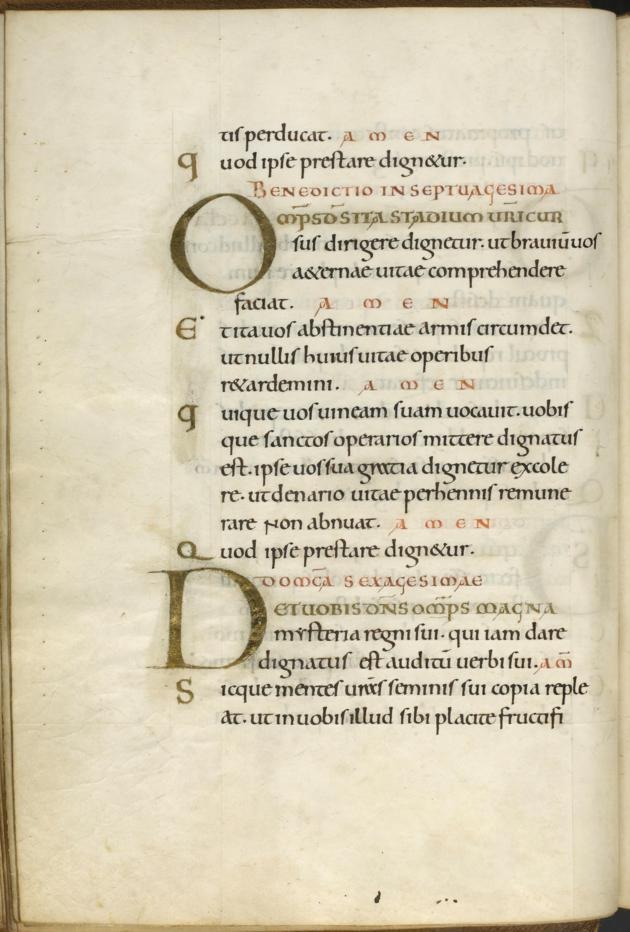 tis perducat. AMEN
quod ipse prestare dign&ur.
BENEDICTIO IN SEPTUAGESIMA
OMPS DS ITA STADIUM URI CUR
sus dirigere dignetur. ut brauiū uos
a&ernae uitae comprehendere
faciat. AMEN
Et ita uos abstinentiae armis circumdet.
ut nullis huius uitae operibus
r&ardemini. AMEN
quique uos uineam suam uocauit. uobis
que sanctos operarios mittere dignatus
est. ipse uos sua gratia dignetur excole
re. ut denario uitae perhennis remune
rare non abnuat. AMEN
Quod ipse prestare dign&ur.
DOMCA SEXAGESIMAE
DET UOBIS DNS OMPS MAGNA
mysteria regni sui. qui iam dare
dignatus est auditū uerbi sui. AM
Sicque mentes uras seminis sui copia reple
at. ut in uobis illud sibi placite fructifi